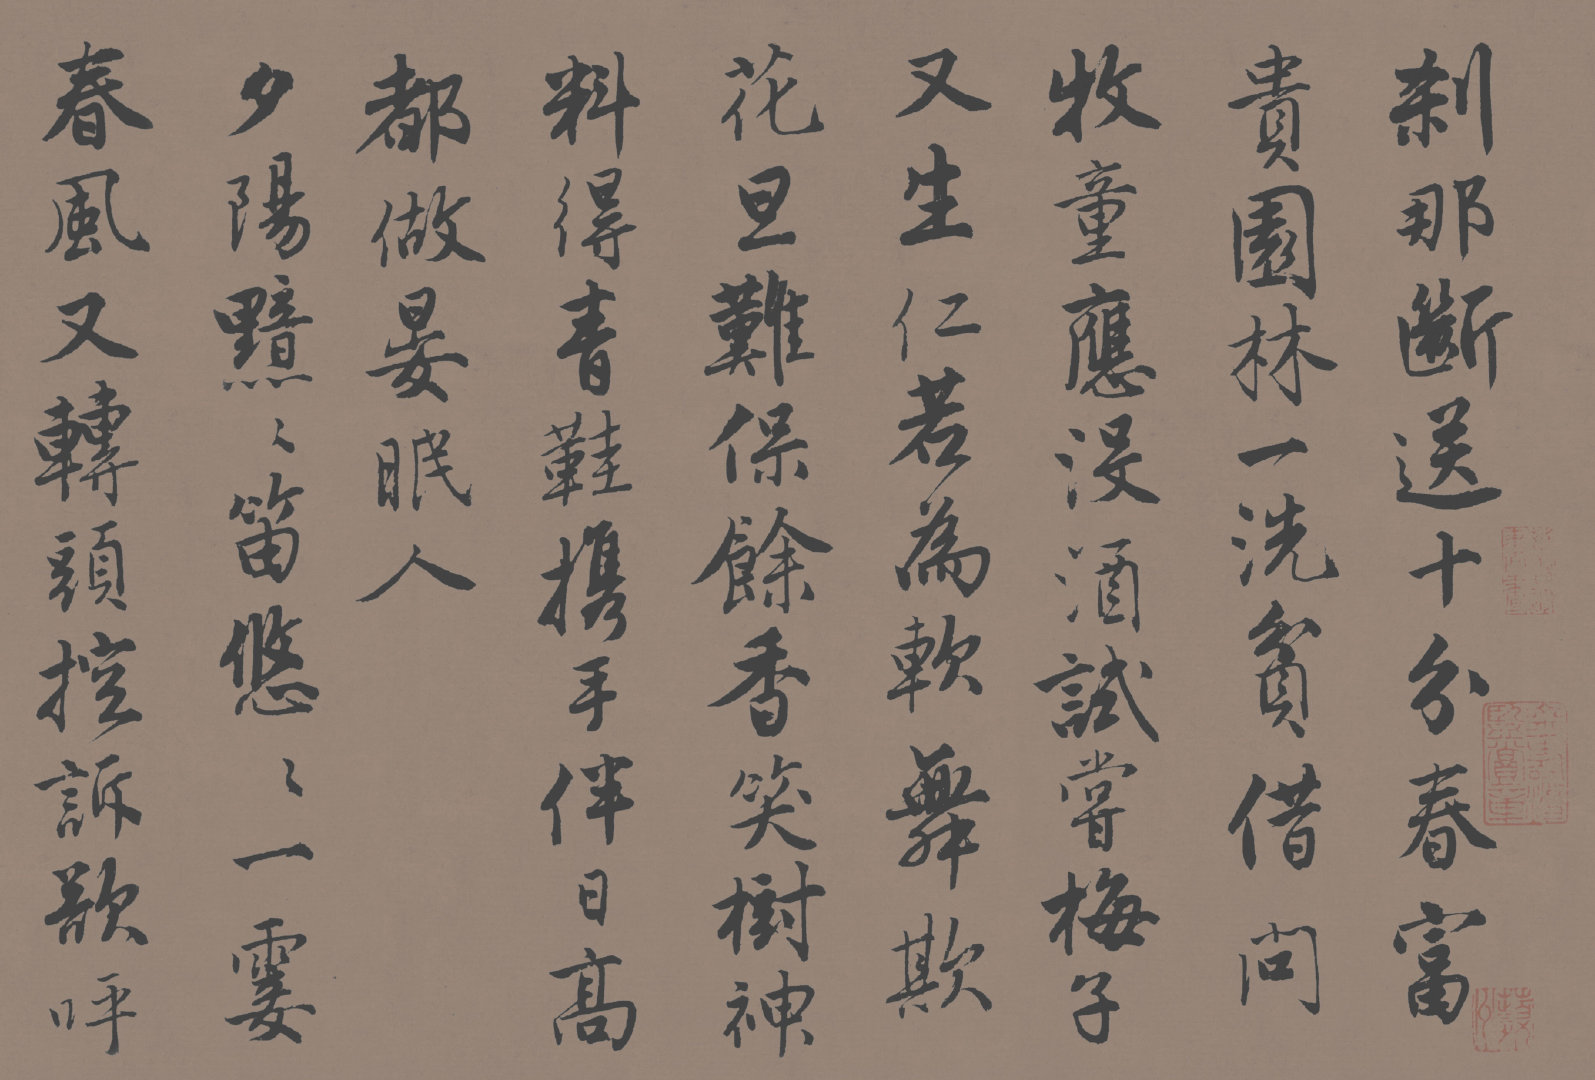 剎那斷送十分春富
貴園林一洗貧借問
牧童應沒酒試嘗梅子
又生仁若為軟舞欺
花旦難保餘香笑樹神
料得青鞋攜手伴日高
都做晏眠人
夕陽黯〻笛悠〻一霎
春風又轉頭控訴歙呼